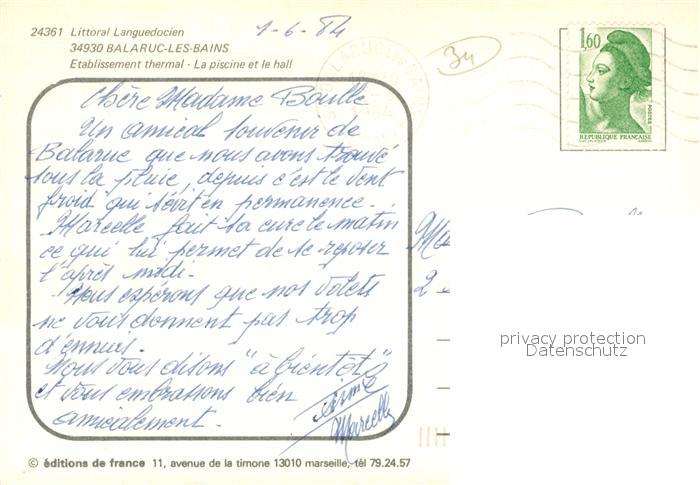 24361 Littoral Languedocien
34930 BALARUC-LES-BAINS
Etablissement thermal - La piscine et le hall
1-6-84
34
1,60
POSTES
REPUBLIQUE FRANÇAISE
Chère Madame Boulle
Un amical souvenir de
Balaruc que nous avons trouvé
sous la pluie, depuis c'est le vent
froid qui sévit en permanence.
Marcelle fait sa cure le matin
ce qui lui permet de se reposer
l'après midi.
Nous espérons que nos volets
ne vous donnent pas trop
d'ennuis.
Nous vous disons "à bientôt"
et vous embrassons bien
amicalement.
Marcelle
2
privacy protection
Datenschutz
© éditions de france 11, avenue de la timone 13010 marseille, tél 79.24.57